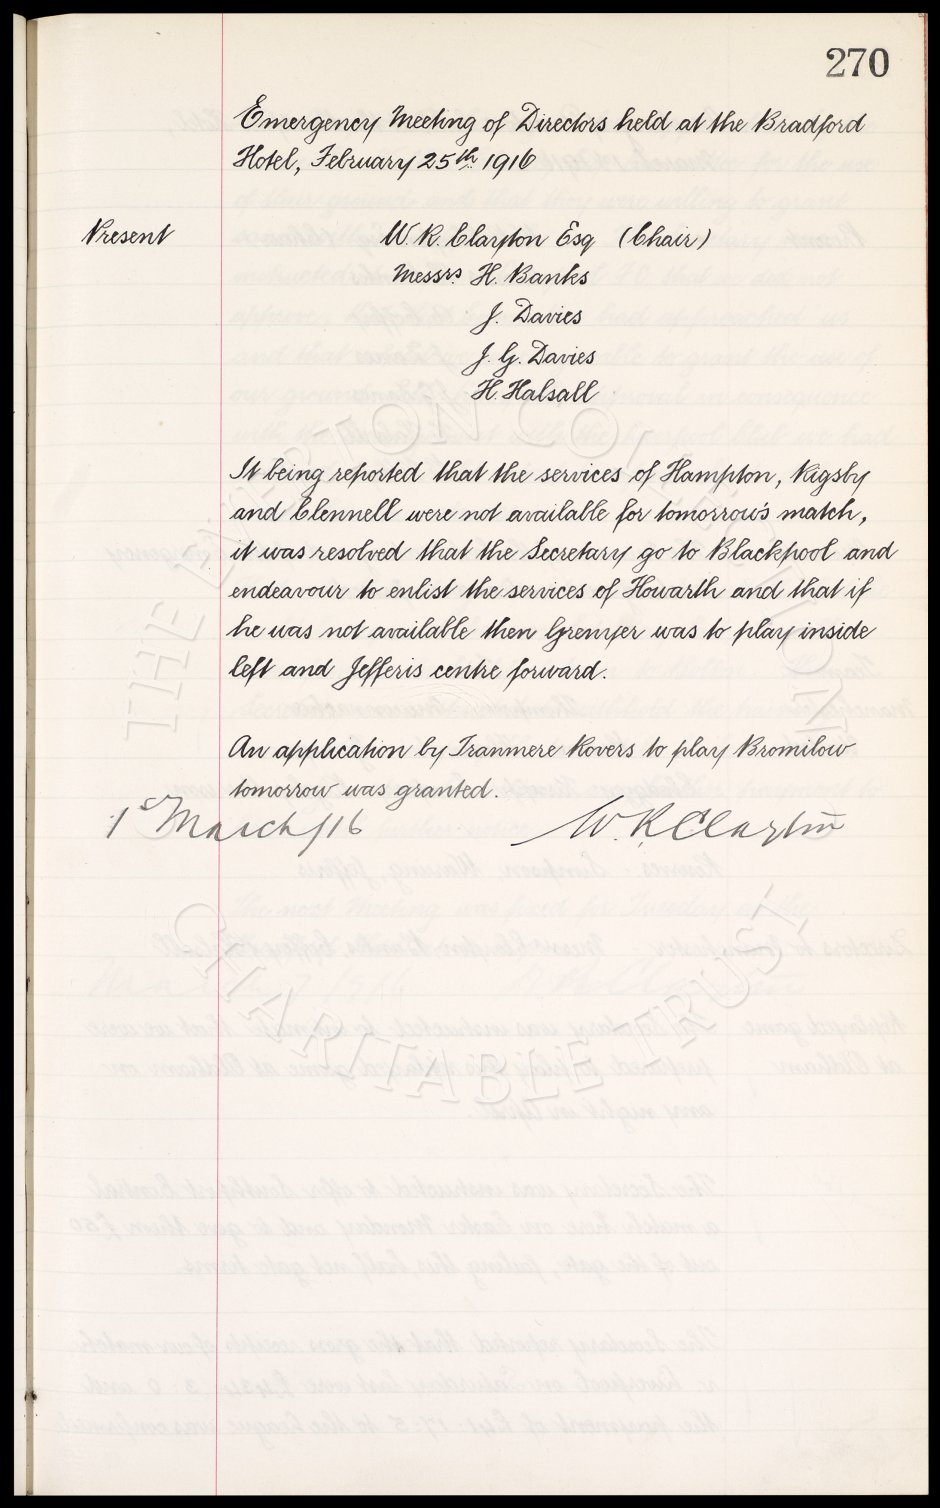 270
Emergency Meeting of Directors held at the Bradford
Hotel, February 25th 1916
Present
W. R. Clayton Esq (Chair)
Messrs. H. Banks
J. Davies
J. G. Davies
H. Halsall
It being reported that the services of Hampton, Rigsby
and Clennell were not available for tomorrow's match,
it was resolved that the Secretary go to Blackpool and
endeavour to enlist the services of Howarth and that if
he was not available then Grenyer was to play inside
left and Jefferis centre forward.
An application by Tranmere Rovers to play Bromilow
tomorrow was granted.
1st March/16 W. R. Clayton
THE EVERTON COLLECTION
CHARITABLE TRUST